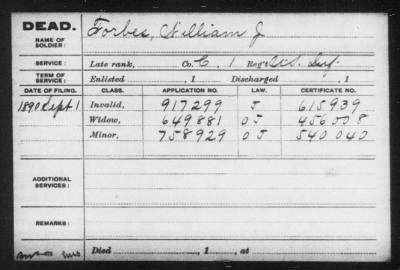 DEAD.
NAME OF SOLDIER: Forbes, William J
SERVICE: Late rank, Co. C, 1 Reg't U.S. Inf.
TERM OF SERVICE: Enlisted , 1 Discharged , 1
DATE OF FILING. CLASS. APPLICATION NO. LAW. CERTIFICATE NO.
1890 Sept 1 Invalid, 917299 J 615939
Widow, 649881 O J
Minor, 758929 O J 540040
ADDITIONAL SERVICES:
REMARKS:
Died , 1 , at